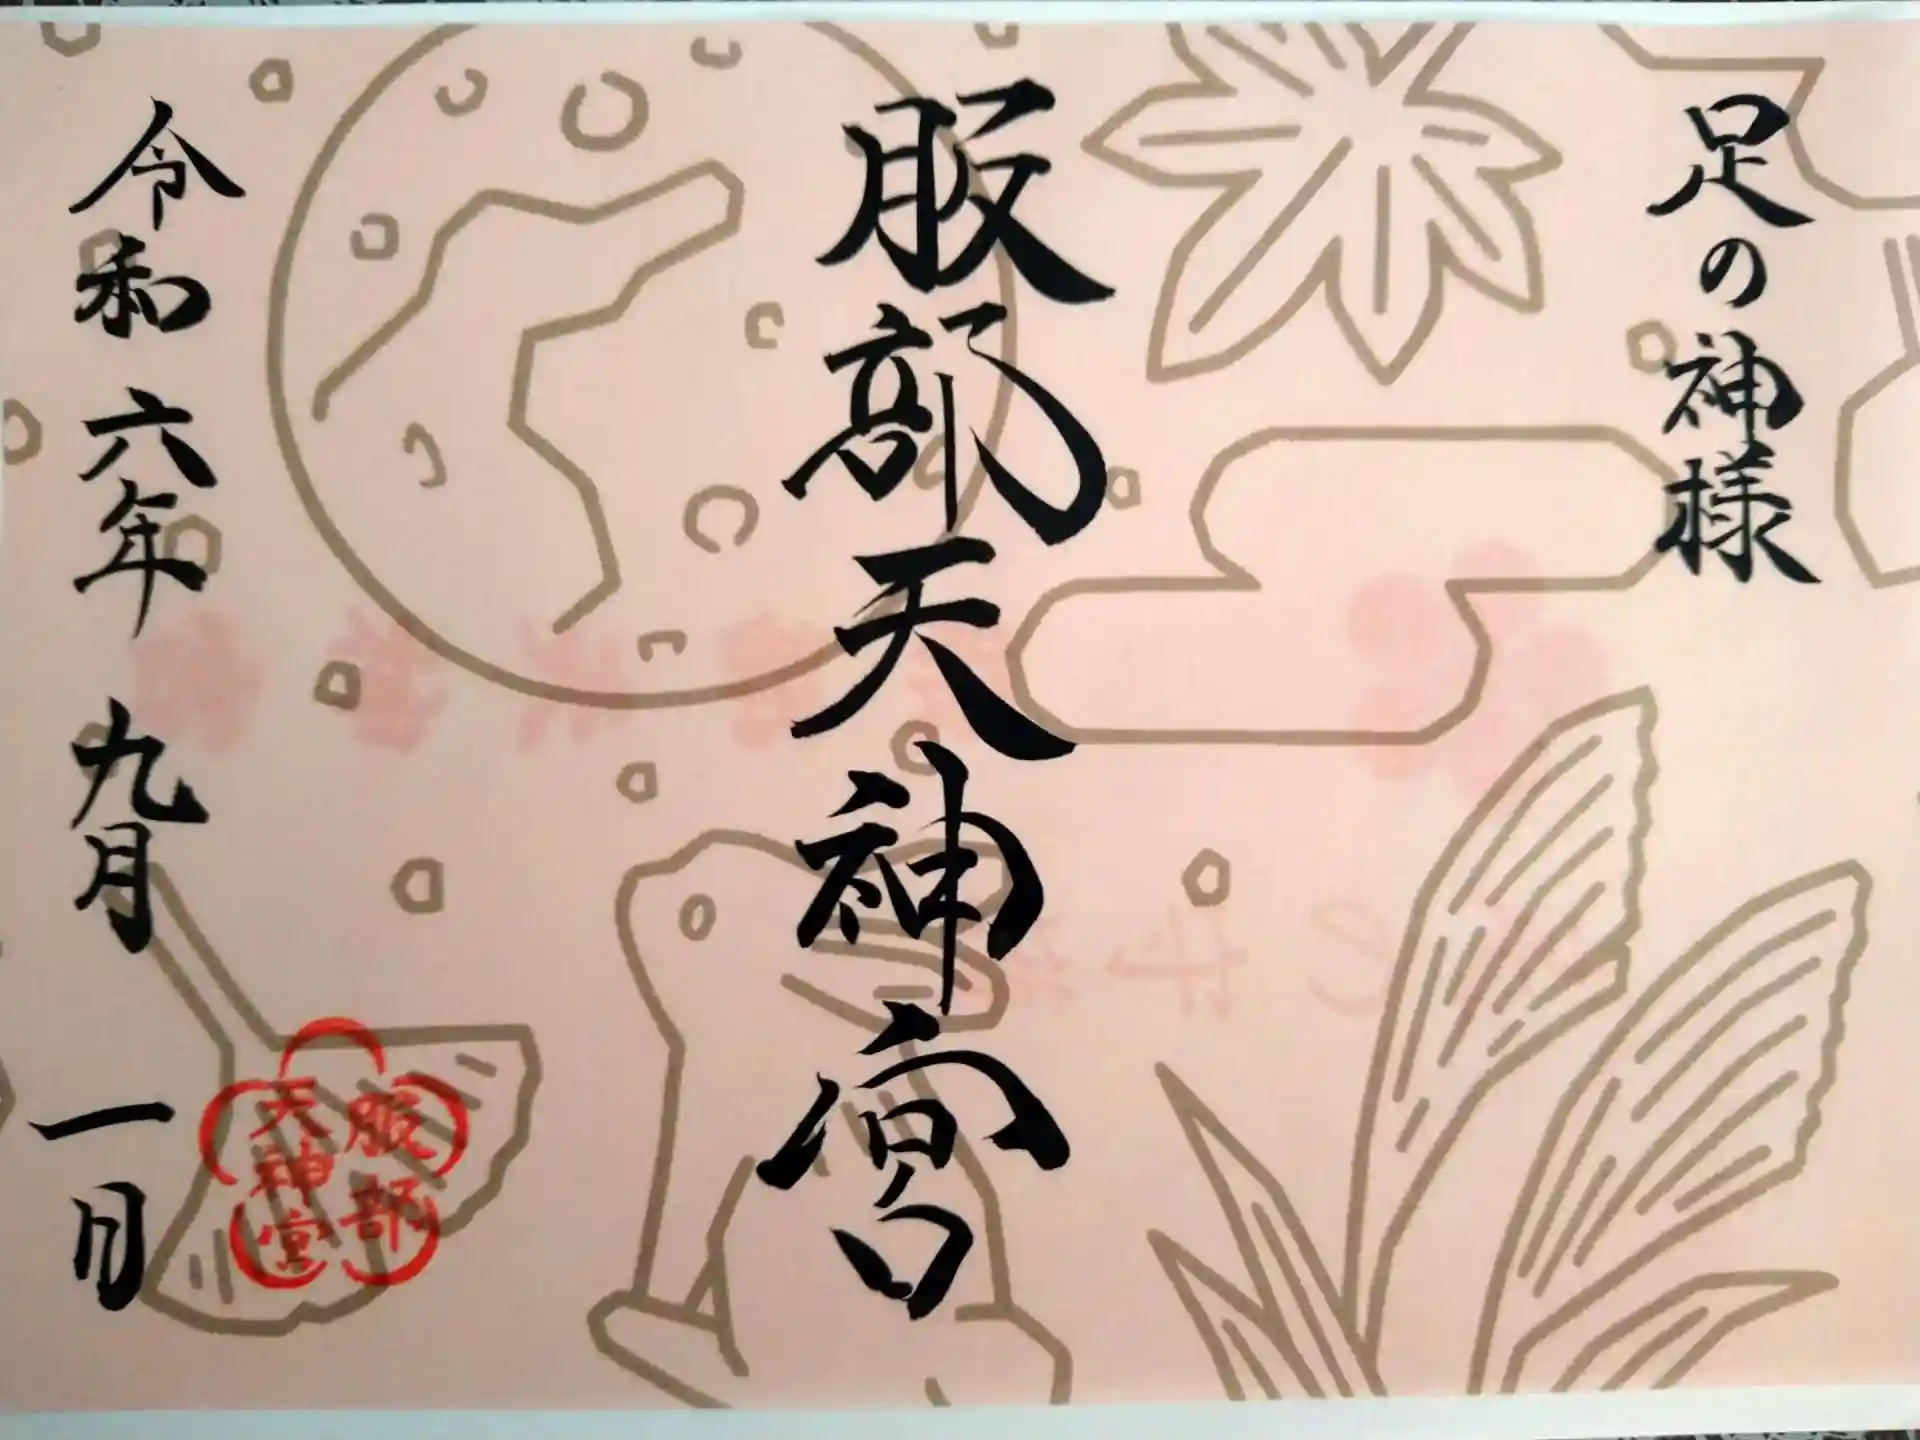 足の神様
服部天神宮
令和六年九月一日
服部
天神宮